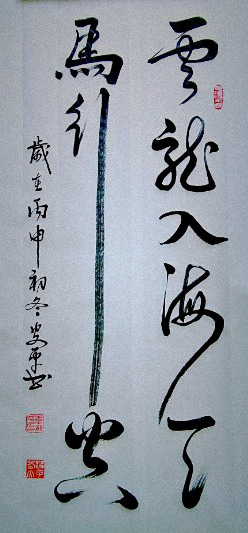 雲龍入海天
馬行空
歲在丙申初冬